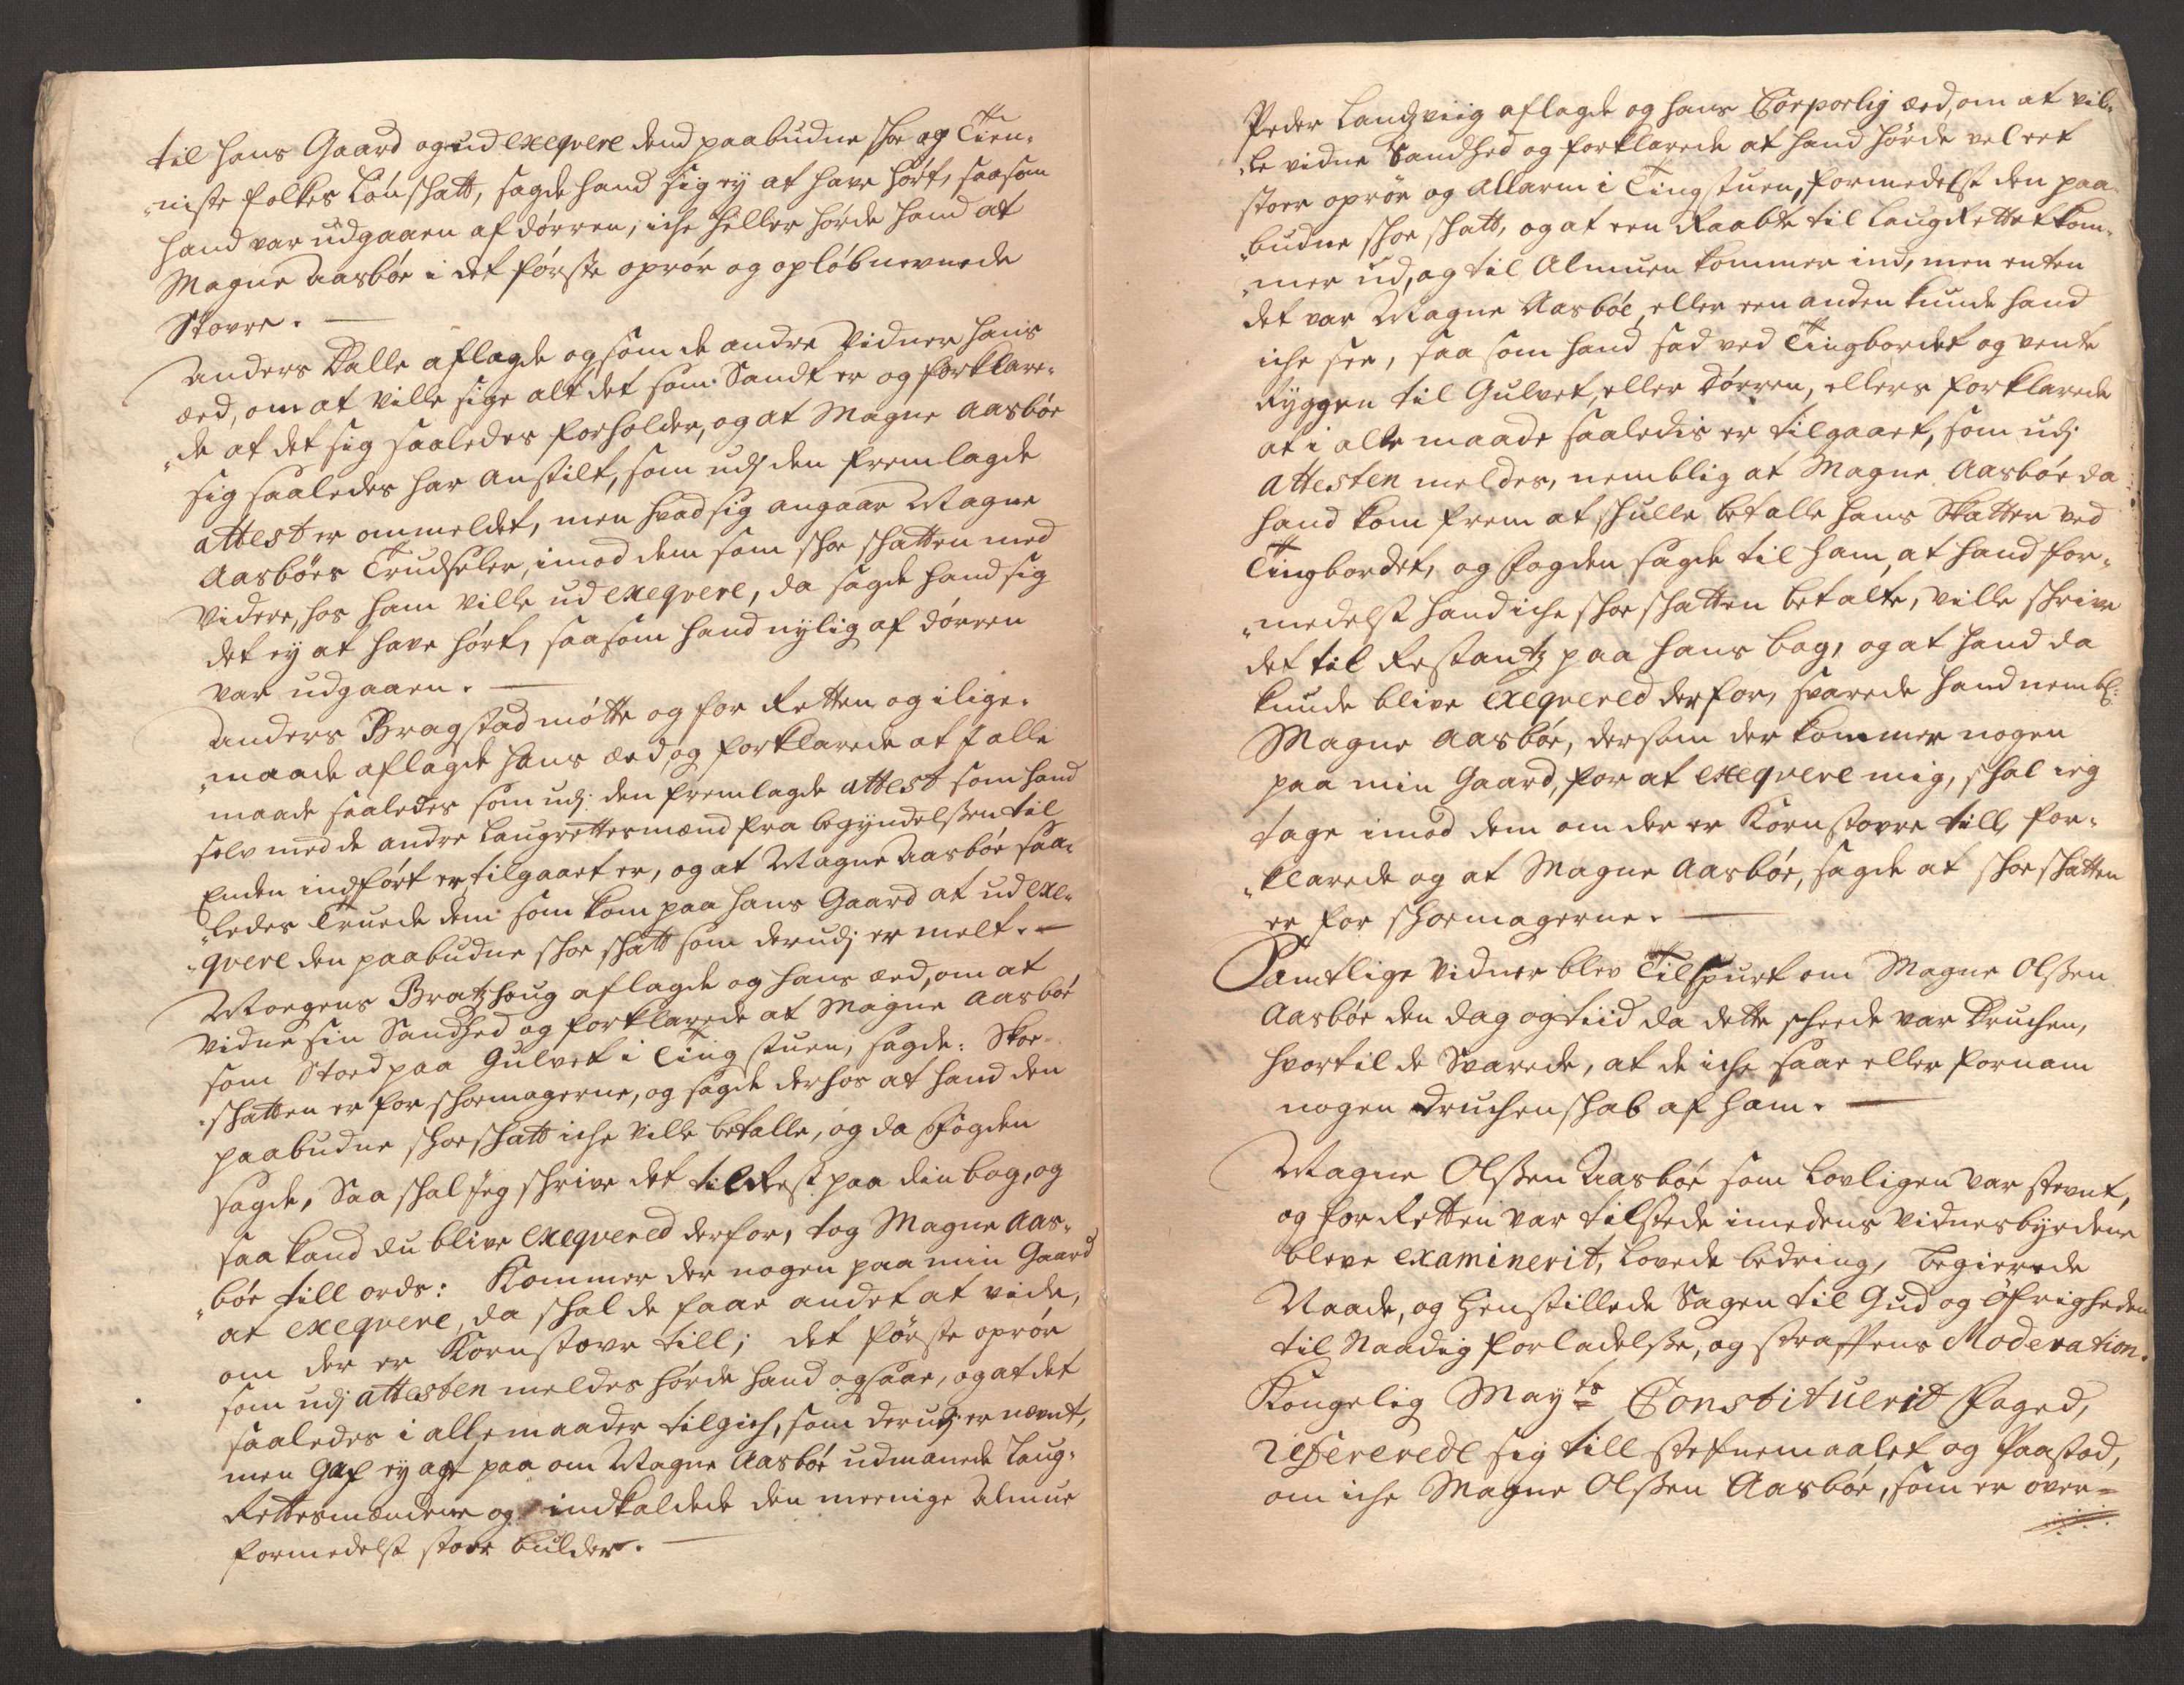 til hans Gaard og ud exeqvere dend paabudne skoe og Tien-
niste folkes Løn skatt, sagde hand sig ey at have hørt, saasom
hand var udgaaen af dørren, iche heller hørde hand at
Magne Aasbøe i det første oprør og opløb nevnede
Stovre.
Anders Dalle aflagde og som de andre Vidner hans
æed, om at ville sige alt det som Sandt er og forklare-
de at det sig saaledes forholder, og at Magne Aasbøe
sig saaledes har anstilt, som udj den fremlagde
attest er ommeldet, men hvad sig angaar Magne
Aasbøes Trudseler, imod dem som skoe skatten med
Videre, hos ham ville ud exeqvere, da sagde hand sig
det ey at have hørt, saasom hand nylig af dørren
var udgaaen.
Anders Bragstad møtte og for Retten og i lige-
maade aflagde hans æed, og forklarede at i alle
maade saaledes som udj den fremlagde attest som hand
selv med de andre laugrettesmænd fra begyndelsen til
Enden indført er, tilgaaet er, og at Magne Aasbøe saa-
ledes Truede dem som kom paa hans Gaard at ud exe-
qvere den paabudne skoe skatt som derudj er melt.
Mogens Bratzhoug aflagde og hans æed, om at
vidne sin Sandhed og forklarede at Magne Aasbøe
som Stoed paa Gulvet i Ting stuen, sagde: Skoe-
skatten er for skoemagerne, og sagde derhos at hand den
paabudne skoeskatt iche ville betalle, og da Fogden
sagde, Saa skal jeg skrive det til Rest paa din bog, og
saa kand du blive exeqvered derfor, tog Magne Aas-
bøe till ords: Kommer der nogen paa min Gaard
at exeqvere, da skal de faae andet at vide,
om der er Kornstovr till; det første oprør
som udj attesten meldes hørde hand og saae, og at det
saaledes i alle maader tilgich, som derudj er nevnt,
men gaf ey agt paa om Magne Aasbøe udmanede Laug-
Rettesmændene og indkaldede den meenige Almue
formedelst stoer bulder.
Peder Landzviig aflagde og hans Corporlig æed, om at vil-
le vidne Sandhed og forklarede at hand hørde vel eet
stoer oprør og Allarm i Tingstuen, formedelst den paa-
budne skoe skatt, og at een Raabte til LaugRettet kom-
mer ud, og til Almuen kommer ind, men enten
det var Magne Aasbøe, eller een anden kunde hand
iche see, saa som hand sad ved Tingbordet og vente
Ryggen til Gulvet, eller Dørren, ellers forklarede
at i alle maade saaledis er tilgaaet, som udj
attesten meldes, nemblig at Magne Aasbøe da
hand kom frem at skulle betalle hans Skatter ved
Tingbordet, og Fogden sagde til ham, at hand for-
medelst hand iche skoe skatten betalte, ville skrive
det til Restantz paa hans bog, og at hand da
kunde blive exeqvered derfor, svarede hand nembl:
Magne Aasbøe, dersom der kommer nogen
paa min Gaard, for at exeqvere mig, skal ieg
tage imod dem om der er Kornstovre till, for-
klarede og at Magne Aasbøe, sagde at skoeskatten
er for skoemagerne.
Samtlige Vidner blev Tilspurt om Magne Olsen
Aasbøe den dag og tiid da dette skeede var Druchen,
hvortil de Svarede, at de iche saae eller fornam
nogen druchenskab af ham.
Magne Olsen Aasbøe som lovligen var stevnt,
og for Retten var tilstede imedens vidnesbyrdene
bleve examinerit, lovede bedring, begierede
Naade, og henstillede Sagen til Gud og Øfrigheden
til Naadig forladelse, og straffens Moderation.
Kongelig Mayts Constituerit Foged,
refererede sig till Stefnemaalet og Paastod,
om iche Magne Olsen Aasbøe, som er over-